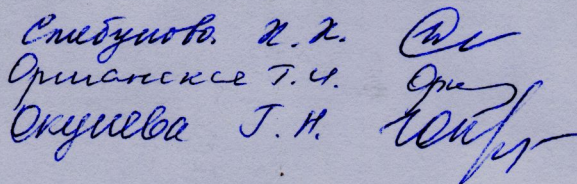 Стебунова Н. Н.
Оршанская Т. И.
Окунева Т. Н.